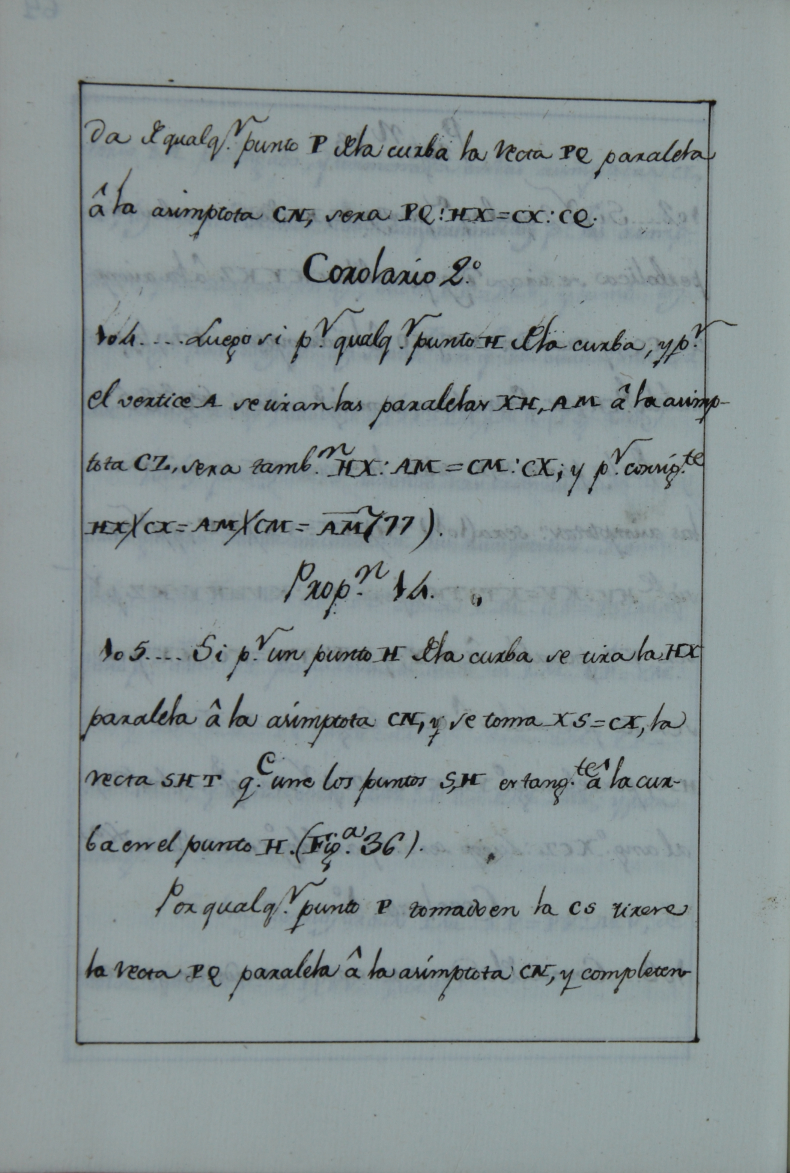 da de qualq.r punto P de la curba la recta PQ paralela
â la asimptota CN, sera PQ:HX=CX:CQ.
Corolario 2.º
104.... Luego si p.r qualq.r punto H de la curba, y p.r
el vertice A se tiran las paralelas XH, AM â la asimp-
tota CZ, sera tamb.n HX:AM=CM:CX; y p.r consig.te
HX×CX=AM×CM=AM²(77).
Prop.n 14.
105.... Si p.r un punto H de la curba se tira la HX
paralela â la asimptota CN, y se toma XS=CX, la
recta SHT q.e une los puntos S,H es tang.te â la cur-
ba en el punto H.(Fig.a 36).
Por qualq.r punto P tomado en la CS tirese
la recta PQ paralela â la asimptota CN, y completen-